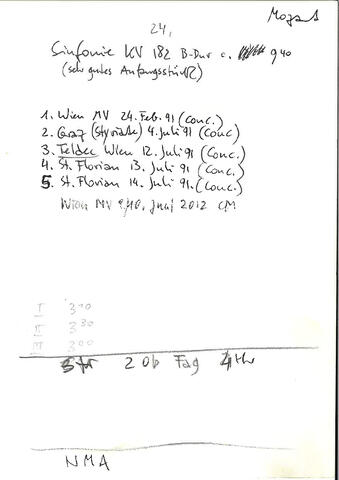 Mozart
24.
Sinfonie KV 182 B-Dur c. 9 40
(sehr gutes Anfangsstück)
1. Wien MV 24. Feb. 91 (Conc.)
2. Graz (Styriarte) 4. Juli 91 (Conc)
3. Teldec Wien 12. Juli 91 (Conc.)
4. St. Florian 13. Juli 91 (Conc.)
5. St. Florian 14. Juli 91. (Conc.)
Wien MV 9./10. Juni 2012 CM
I 3 00
II 3 30
III 3 00
Str 2 Ob Fag Hr
NMA